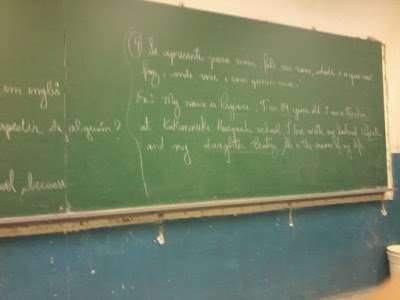 em inglês
espectir de alguém?
because
9) Se apresente para mim, fale seu nome, idade, o que você
faz, onde vive e com quem vive.
Ex: My name is Rejane. I'm 34 years old. I am a teacher
at school. I live with my husband
and my daughter Beatriz, she is the of my life.